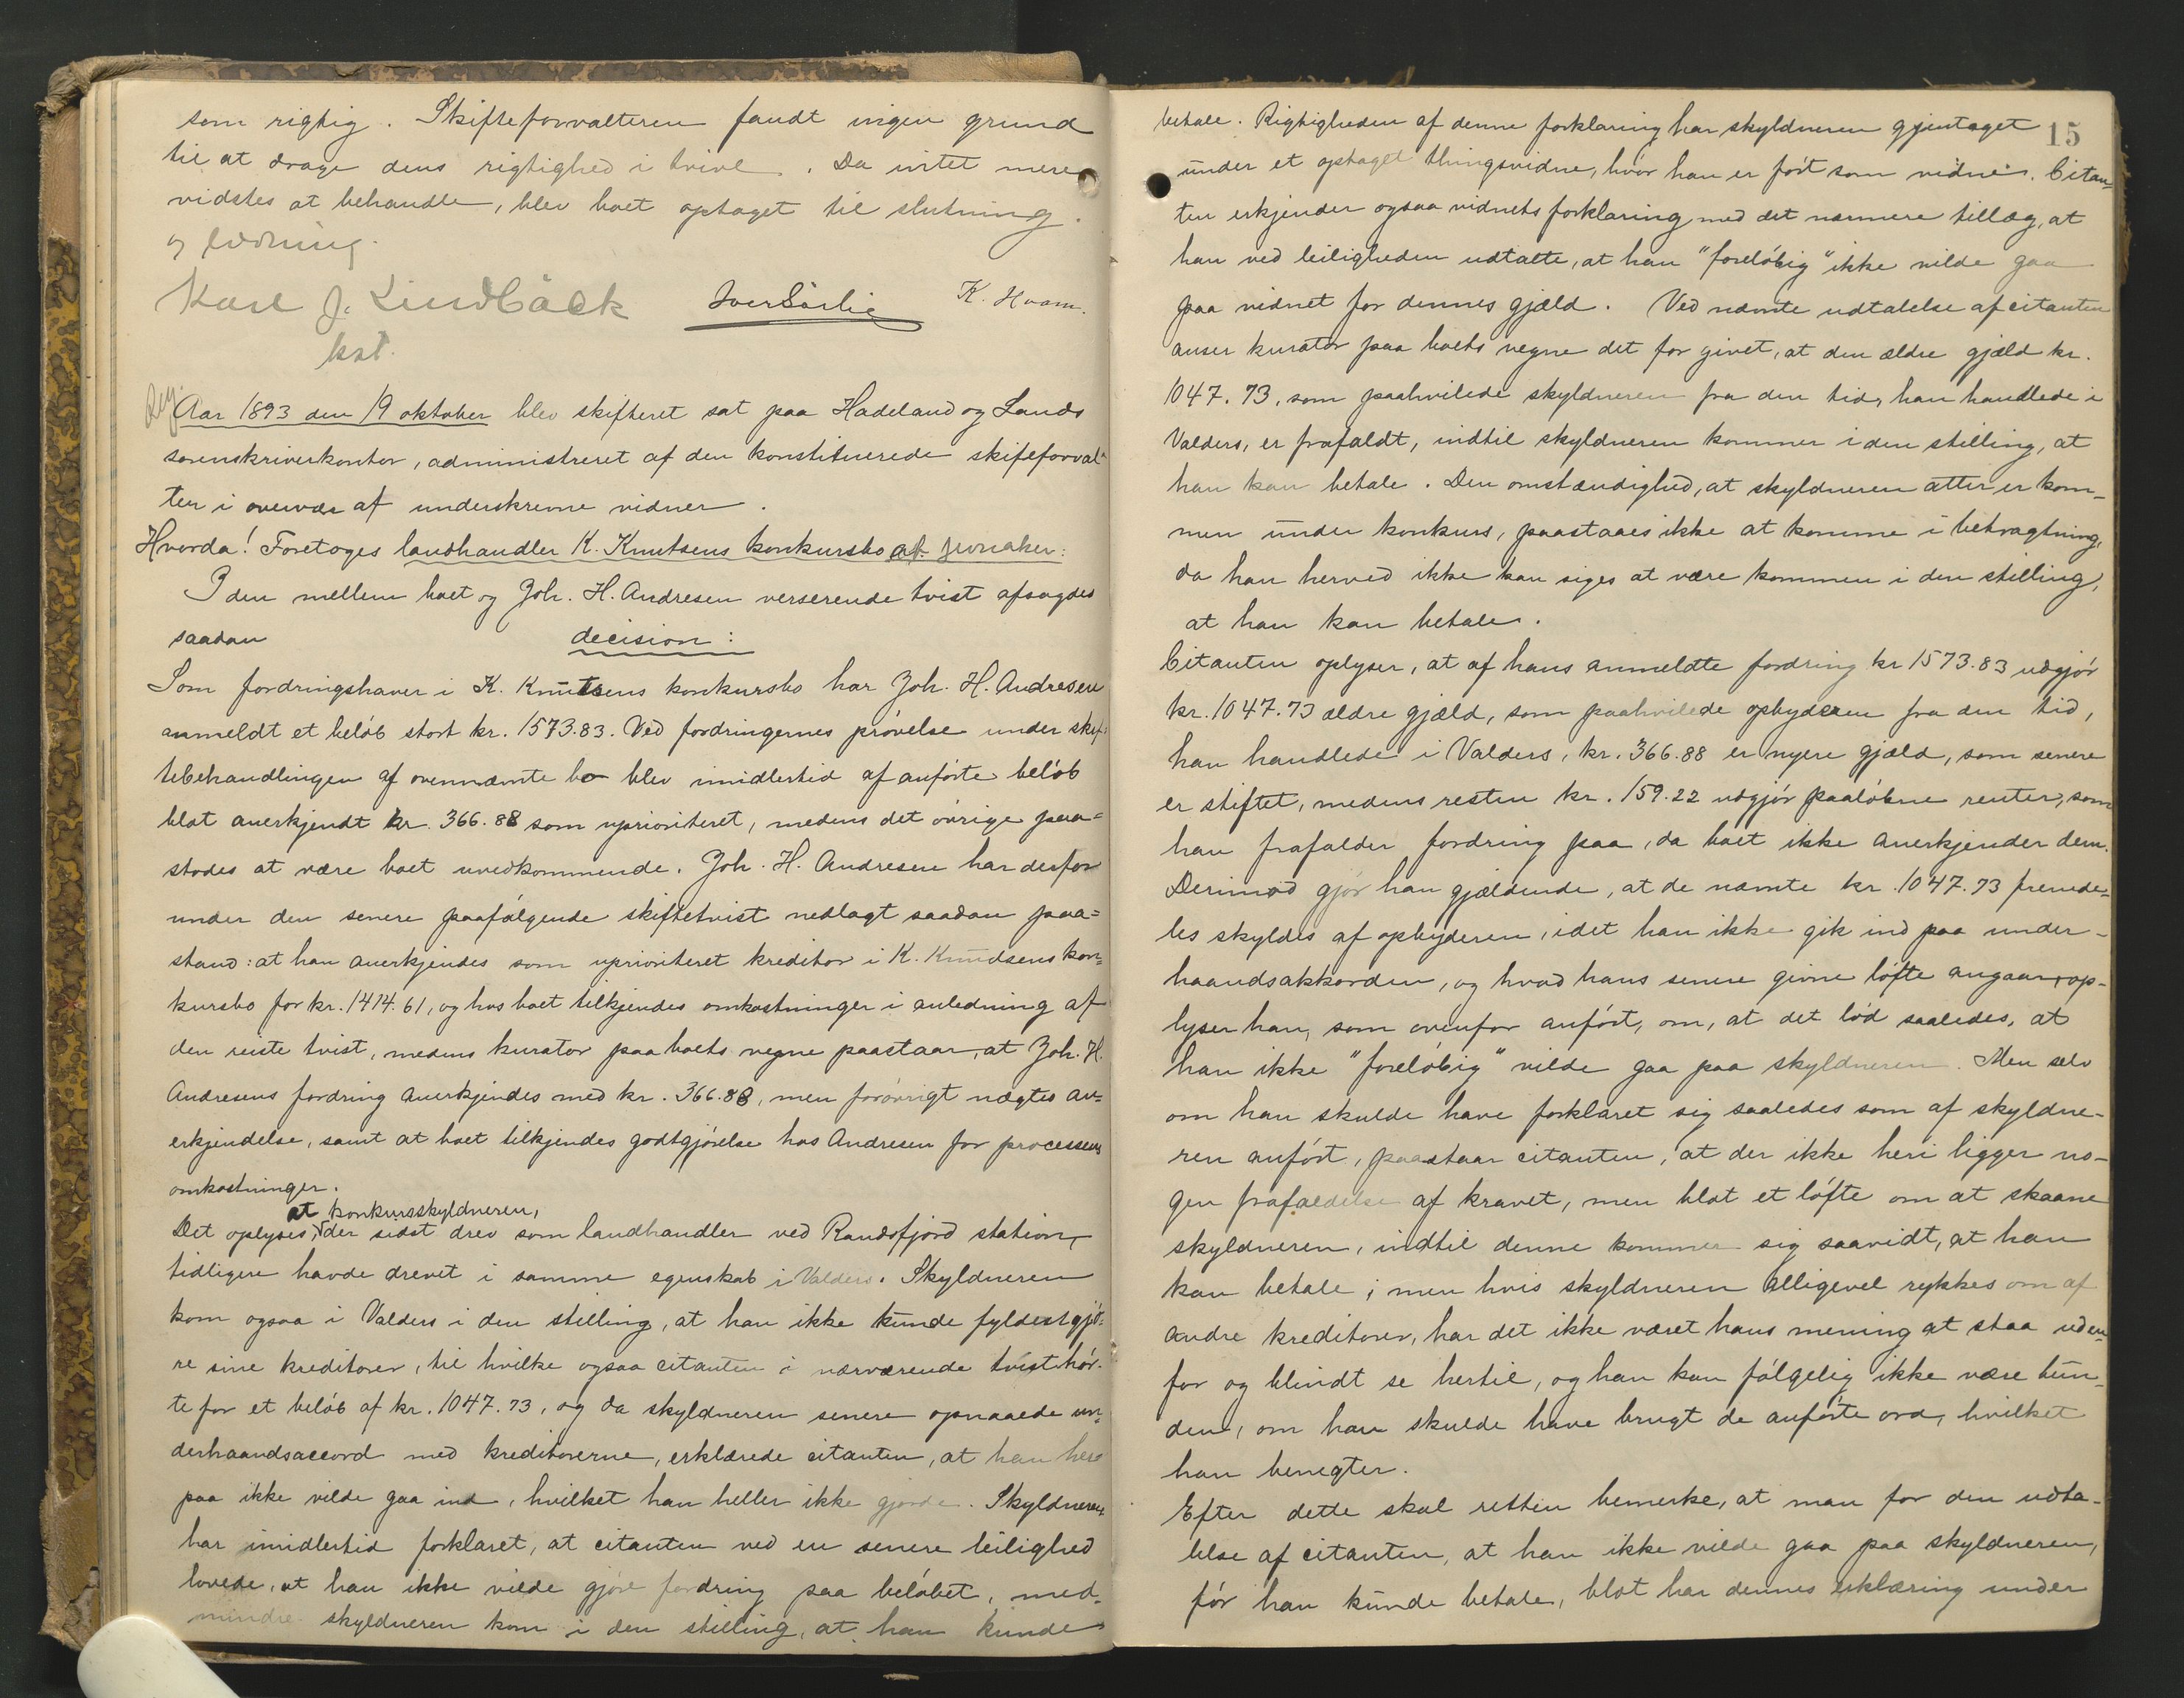 som rigtig. Skifteforvalteren fandt ingen grund
til at drage dens rigtighed i tvivl. Da intet mere
vidstes at behandle, blev boet optaget til slutning
og lødning.
Karl J. Lindbäck Iver Sørlie K. Hvam.
kst.
Aar 1893 den 19 oktober blev skifteret sat paa Hadeland og Lands
sorenskriverkontor, administreret af den konstituerede skifteforval-
ter i overvær af underskrevne vidner.
Hvorda! Foretoges landhandler K. Knutsens konkursbo af Jevnaker:
I den mellem boet og Joh. H. Andresen verserende tvist afsagdes
saadan decision:
Som fordringshaver i K. Knutsens konkursbo har Joh. H. Andresen
anmeldt et beløb stort kr. 1573.83. Ved fordringernes prøvelse under skif-
tebehandlingen af ovennævnte bo blev imidlertid af anførte beløb
blot anerkjendt kr. 366.88 som uprioriteret, medens det øvrige paa-
stodes at være boet uvedkommende. Joh. H. Andresen har derfor
under den senere paafølgende skiftetvist nedlagt saadan paa=
stand: at han anerkjendes som uprioriteret kreditor i K. Knudsens kon-
kursbo for kr. 1414.61, og hos boet tilkjendes omkostninger i anledning af
den reiste tvist, medens kurator paa boets vegne paastaar, at Joh. H.
Andresens fordring anerkjendes med kr. 366.88, men forøvrigt nægtes an-
erkjendelse, samt at boet tilkjendes godtgjørelse hos Andresen for processens
omkostninger.
at konkursskyldneren,
Det oplyses, der sidst drev som landhandler ved Randsfjord station,
tidligere havde drevet i samme egenskab i Valders. Skyldneren
kom ogsaa i Valders i den stilling, at han ikke kunde fyldestgjø-
re sine kreditorer, til hvilke ogsaa citanten i nærværende tvist hør-
te for et beløb af kr. 1047.73, og da skyldneren senere opnaaede un-
derhaandsaccord med kreditorerne, erklærede citanten, at han her-
paa ikke vilde gaa ind, hvilket han heller ikke gjorde. Skyldneren
har imidlertid forklaret, at citanten ved en senere leilighed
lovede, at han ikke vilde gjøre fordring paa beløbet, med-
mindre skyldneren kom i den stilling, at han kunde
15
betale. Rigtigheden af denne forklaring har skyldneren gjentaget
under et optaget thingsvidne, hvor han er ført som vidne. Citan-
ten erkjender ogsaa vidnets forklaring med det nærmere tillæg, at
han ved leiligheden udtalte, at han "foreløbig" ikke vilde gaa
paa vidnet for dennes gjæld. Ved nævnte udtalelse af citanten
anser kurator paa boets vegne det for givet, at den ældre gjæld kr.
1047.73, som paahvilede skyldneren fra den tid, han handlede i
Valders, er frafaldt, indtil skyldneren kommer i den stilling, at
han kan betale. Den omstændighed, at skyldneren atter er kom-
men under konkurs, paastaaes ikke at komme i betragtning,
da han herved ikke kan siges at være kommen i den stilling,
at han kan betale.
Citanten oplyser, at af hans anmeldte fordring kr 1573.83 udgjør
kr. 1047.73 ældre gjæld, som paahvilede opbyderen fra den tid,
han handlede i Valders, kr. 366.88 er nyere gjæld, som senere
er stiftet, medens resten kr. 159.22 udgjør paaløbne renter, som
han frafalder fordring paa, da boet ikke anerkjender dem.
Derimod gjør han gjældende, at de nævnte kr. 1047.73 fremde-
les skyldes af opbyderen, idet han ikke gik ind paa under-
haandsakkorden, og hvad hans senere givne løfte angaar, op-
lyser han, som ovenfor anført, om, at det lød saaledes, at
han ikke "foreløbig" vilde gaa paa skyldneren. Men selv
om han skulde have forklaret sig saaledes som af skyldne-
ren anført, paastaar citanten, at der ikke heri ligger no-
gen frafaldelse af kravet, men blot et løfte om at skaane
skyldneren, indtil denne kommer sig saavidt, at han
kan betale; men hvis skyldneren alligevel rykkes om af
andre kreditorer, har det ikke været hans mening at staa uden-
for og blindt se hertil, og han kan følgelig ikke være bun-
den, om han skulde have brugt de anførte ord, hvilket
han benegter.
Efter dette skal retten bemerke, at man for den udta-
lelse af citanten, at han ikke vilde gaa paa skyldneren,
før han kunde betale, blot har dennes erklæring under